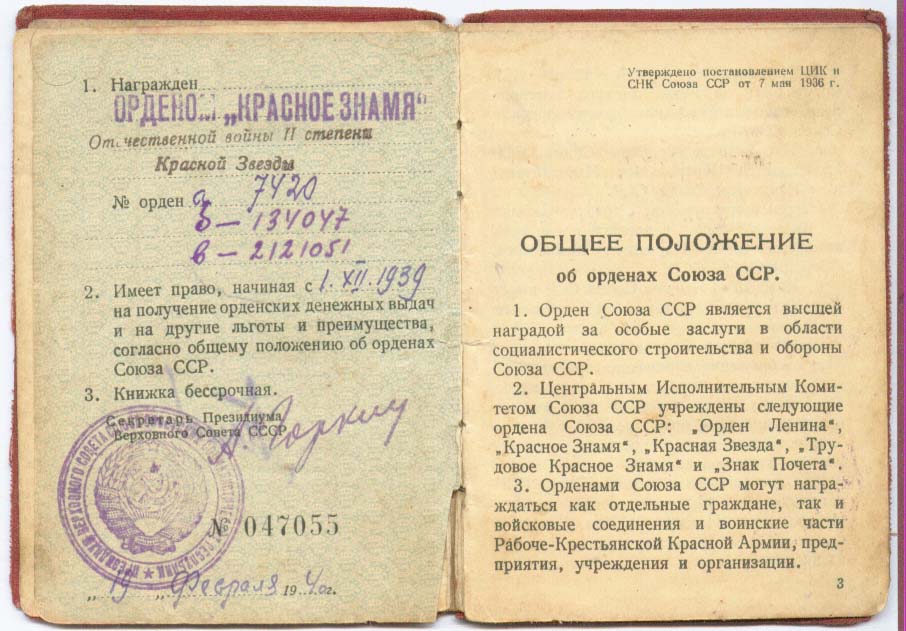 1. Награжден
ОРДЕНОМ „КРАСНОЕ ЗНАМЯ“
Отечественной войны II степени
Красной Звезды
№ орден а 7420
б — 134047
в — 2121051
2. Имеет право, начиная с 1. XII. 1939
на получение орденских денежных выдач
и на другие льготы и преимущества,
согласно общему положению об орденах
Союза ССР.
3. Книжка бессрочная.
Секретарь Президиума
Верховного Совета СССР
А. Горкин
№ 047055
„19“ Февраля 1940 г.
Утверждено постановлением ЦИК и
СНК Союза ССР от 7 мая 1936 г.
ОБЩЕЕ ПОЛОЖЕНИЕ
об орденах Союза ССР.
1. Орден Союза ССР является высшей
наградой за особые заслуги в области
социалистического строительства и обороны
Союза ССР.
2. Центральным Исполнительным Коми-
тетом Союза ССР учреждены следующие
ордена Союза ССР: „Орден Ленина“,
„Красное Знамя“, „Красная Звезда“, „Тру-
довое Красное Знамя“ и „Знак Почета“.
3. Орденами Союза ССР могут награ-
ждаться как отдельные граждане, так и
войсковые соединения и воинские части
Рабоче-Крестьянской Красной Армии, пред-
приятия, учреждения и организации.
3